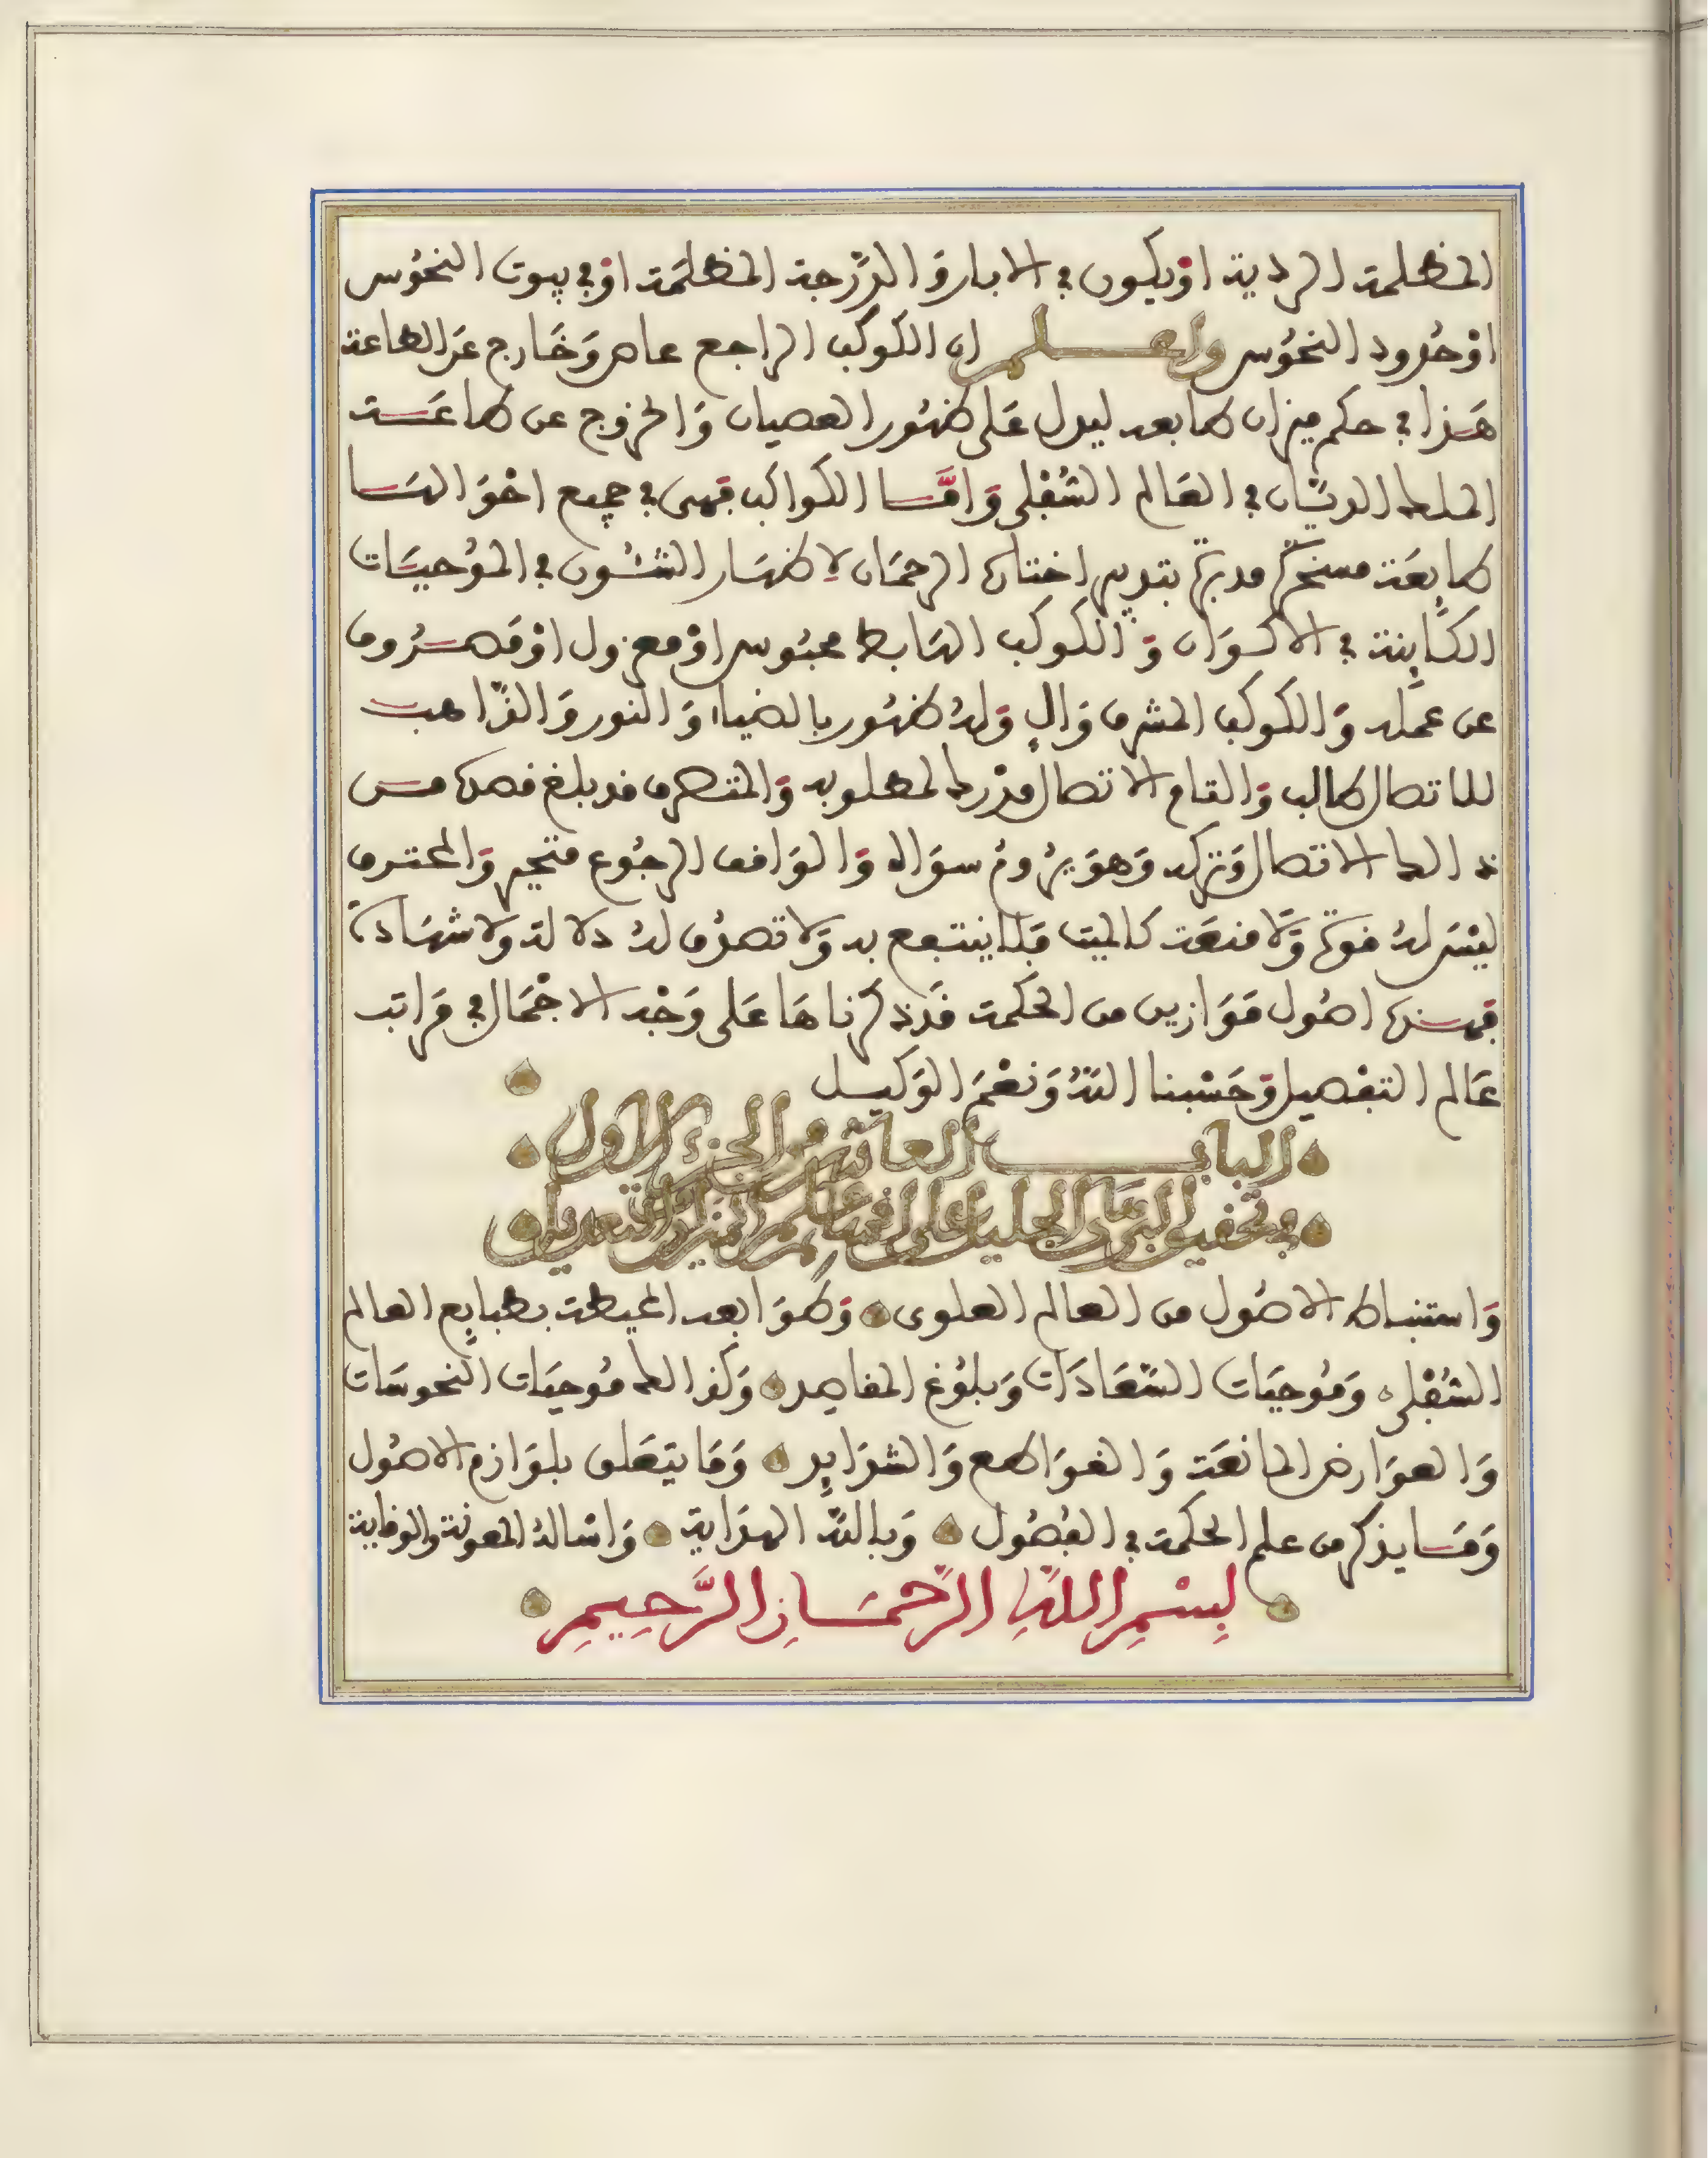 المظلمة الردية اوْ يكون في الابار وَالدّرجة المظلمَة اوْ في بيوت النحُوس
اوْ حُدود النحُوس واعلم ان الكوكب الراجع عاص وَخَارج عَن الطاعة
هَذا في حكم ميزان طابعه ليدل عَلى ظهُور العصيان وَالخروج عن طاعَة
الملك الديّان في العَالم السُفلى وَامَّا الكواكب فهى في جميع احْوَالهَا
طايعَة مسخرة مدبرة بتدبير اختلاف الرحمَان لاِظهَار الشئُون في المُوجبَات
الكَاينة في الاكوَان وَالكوكب الهَابط محبُوس اوْ معزول اوْ مَصرُوف
عن عمَله وَالكوكب المشرف وَالٍ وَلهُ ظهُور بالضياء وَالنور وَالذّاهب
للاتصال طالب وَالتام الاتصال مدْرك لمطلوبه وَالمنصرف قد بلغ قصده من
ذالك الاتصال وَتركه وَهوَ يرُومُ سوَاله وَالوَاقف الرجُوع متحير وَالمحترف
ليْسَ لهُ قوة وَّلا منعَة كالميت فَلا ينتفع به وَلا تصرُف لهُ دلالة ولا شهَادة
فهذه اصُول مَوَازين من الحكمة قَد ذكرناهَا عَلى وَجْه الاجْمَال في مَراتب
عَالم التفْصيل وَحَسْبنا اللهُ وَنعْمَ الوَكيل
الباب العاشر من الجزء الاول
في تحقيق البرهان الجليل على اقسام علم الميزان والتعديل
وَاستنباط الاصُول من العالم العلوى وَطوَابعه المحيطة بطبايع العالم
السُفْلى وَمُوجبَات السَّعَادَات وَبلوُغ المقاصِد وَكذالك مُوجبَات النحوسَات
وَالعوَارض المانعَة وَالقوَاطع وَالشدَايد وَمَا يتعَلق بلوَازم الاصُول
وَمَا يذكر من علم الحكمة في الفصُول وَبالله الهدَاية وَاسْالهُ المعونة والوقاية
بِسْمِ اللهِ الرَّحْمَانِ الرَّحِيمِ